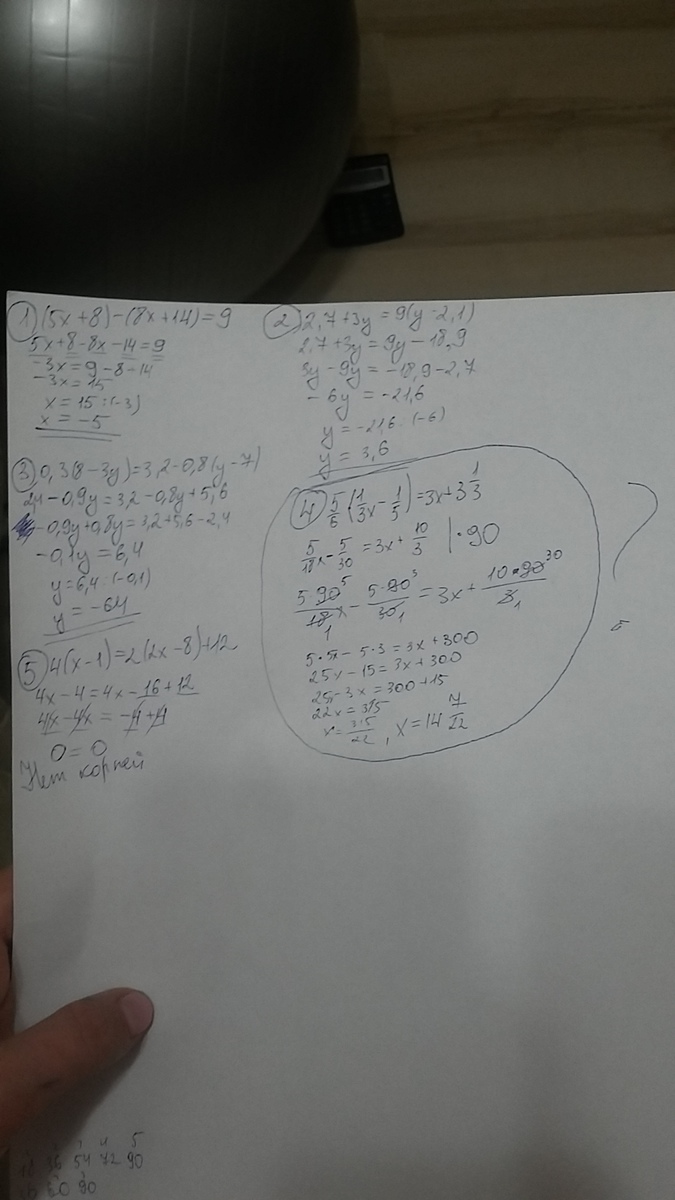 1) (5x+8)-(8x+14)=9
5x+8-8x-14=9
-3x=9-8-14
-3x=15
x=15:(-3)
x=-5
2) 2,7+3y=9(y-2,1)
2,7+3y=9y-18,9
3y-9y=-18,9-2,7
-6y=-21,6
y=-21,6:(-6)
y=3,6
3) 0,3(8-3y)=3,2-0,8(y-7)
2,4-0,9y=3,2-0,8y+5,6
-0,9y+0,8y=3,2+5,6-2,4
-0,1y=6,4
y=6,4:(-0,1)
y=-64
4) 5/6(1/3x-1/5)=3x+3 1/3
5/18x-5/30=3x+10/3 |·90
5·90⁵/18₁x-5·90³/30₁=3x+10·90³⁰/3₁
5·5x-5·3=3x+300
25x-15=3x+300
25x-3x=300+15
22x=315
x=315/22, x=14 7/22
5) 4(x-1)=2(2x-8)+12
4x-4=4x-16+12
4x-4x=-4+4
0=0
Нет корней
54 72 90